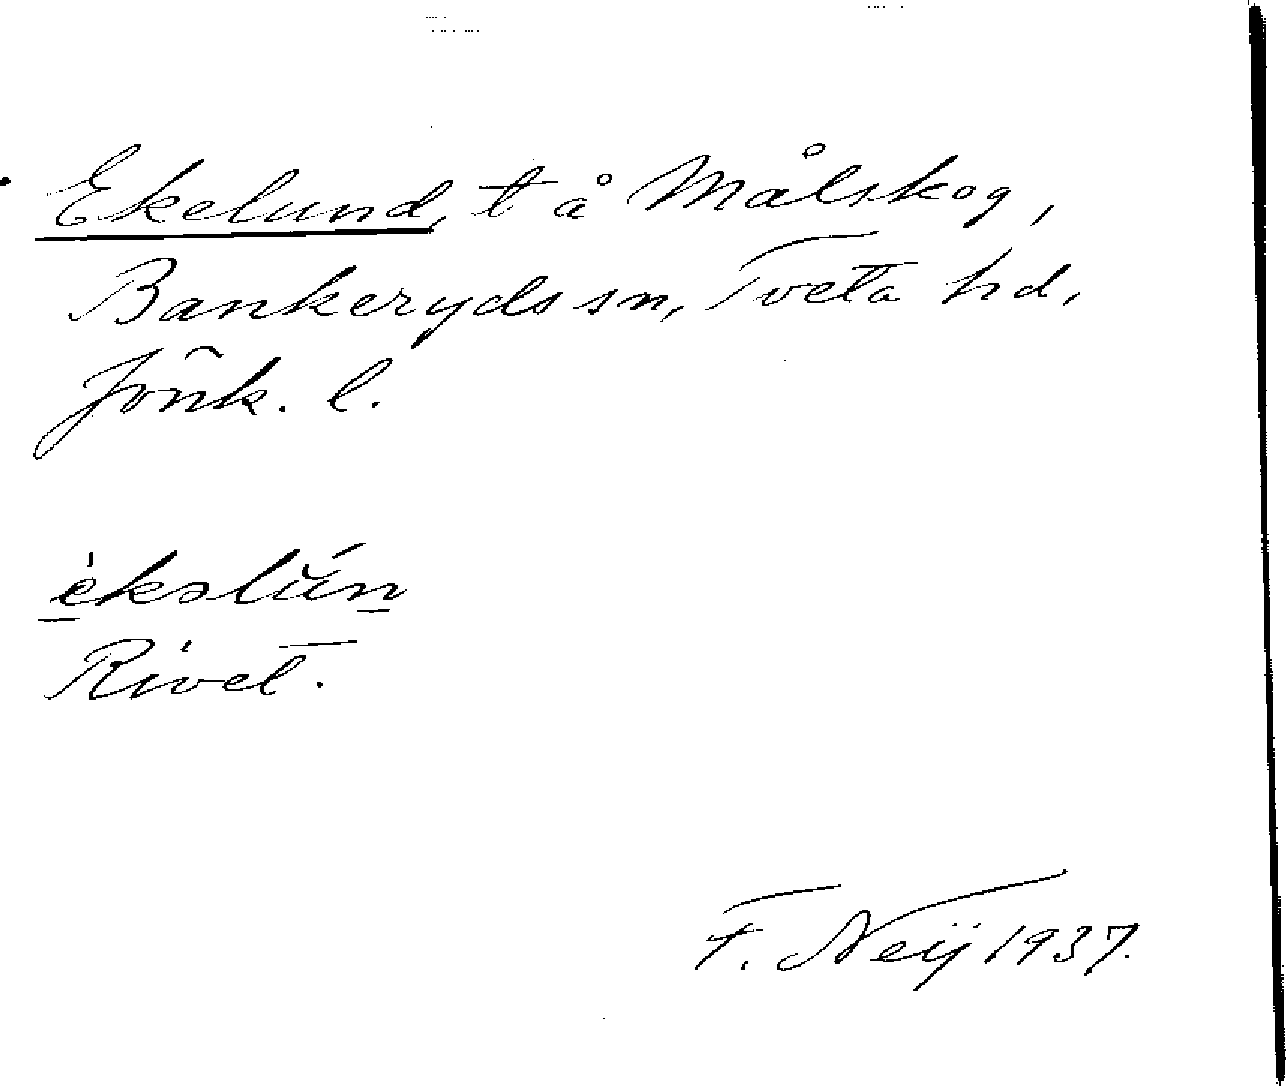 Ekelund, t å Målskog,
Bankeryds sn, Tveta hd,
Jönk. l.
èkəlún
Rivet.
F. Neij 1937.